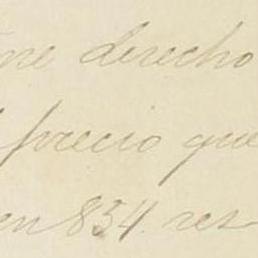 derecho
precio que
en 854 res